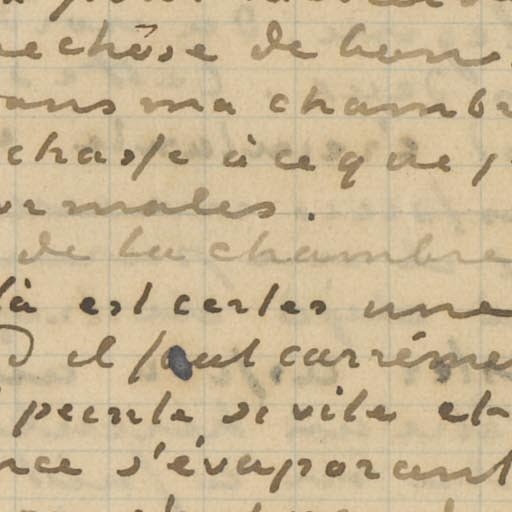 chose de bons
ans ma chambr
chasse à ce que j
ormales.
de la chambre
là est certes une
il faut carréme
pente si vite et
nce s'évaporant